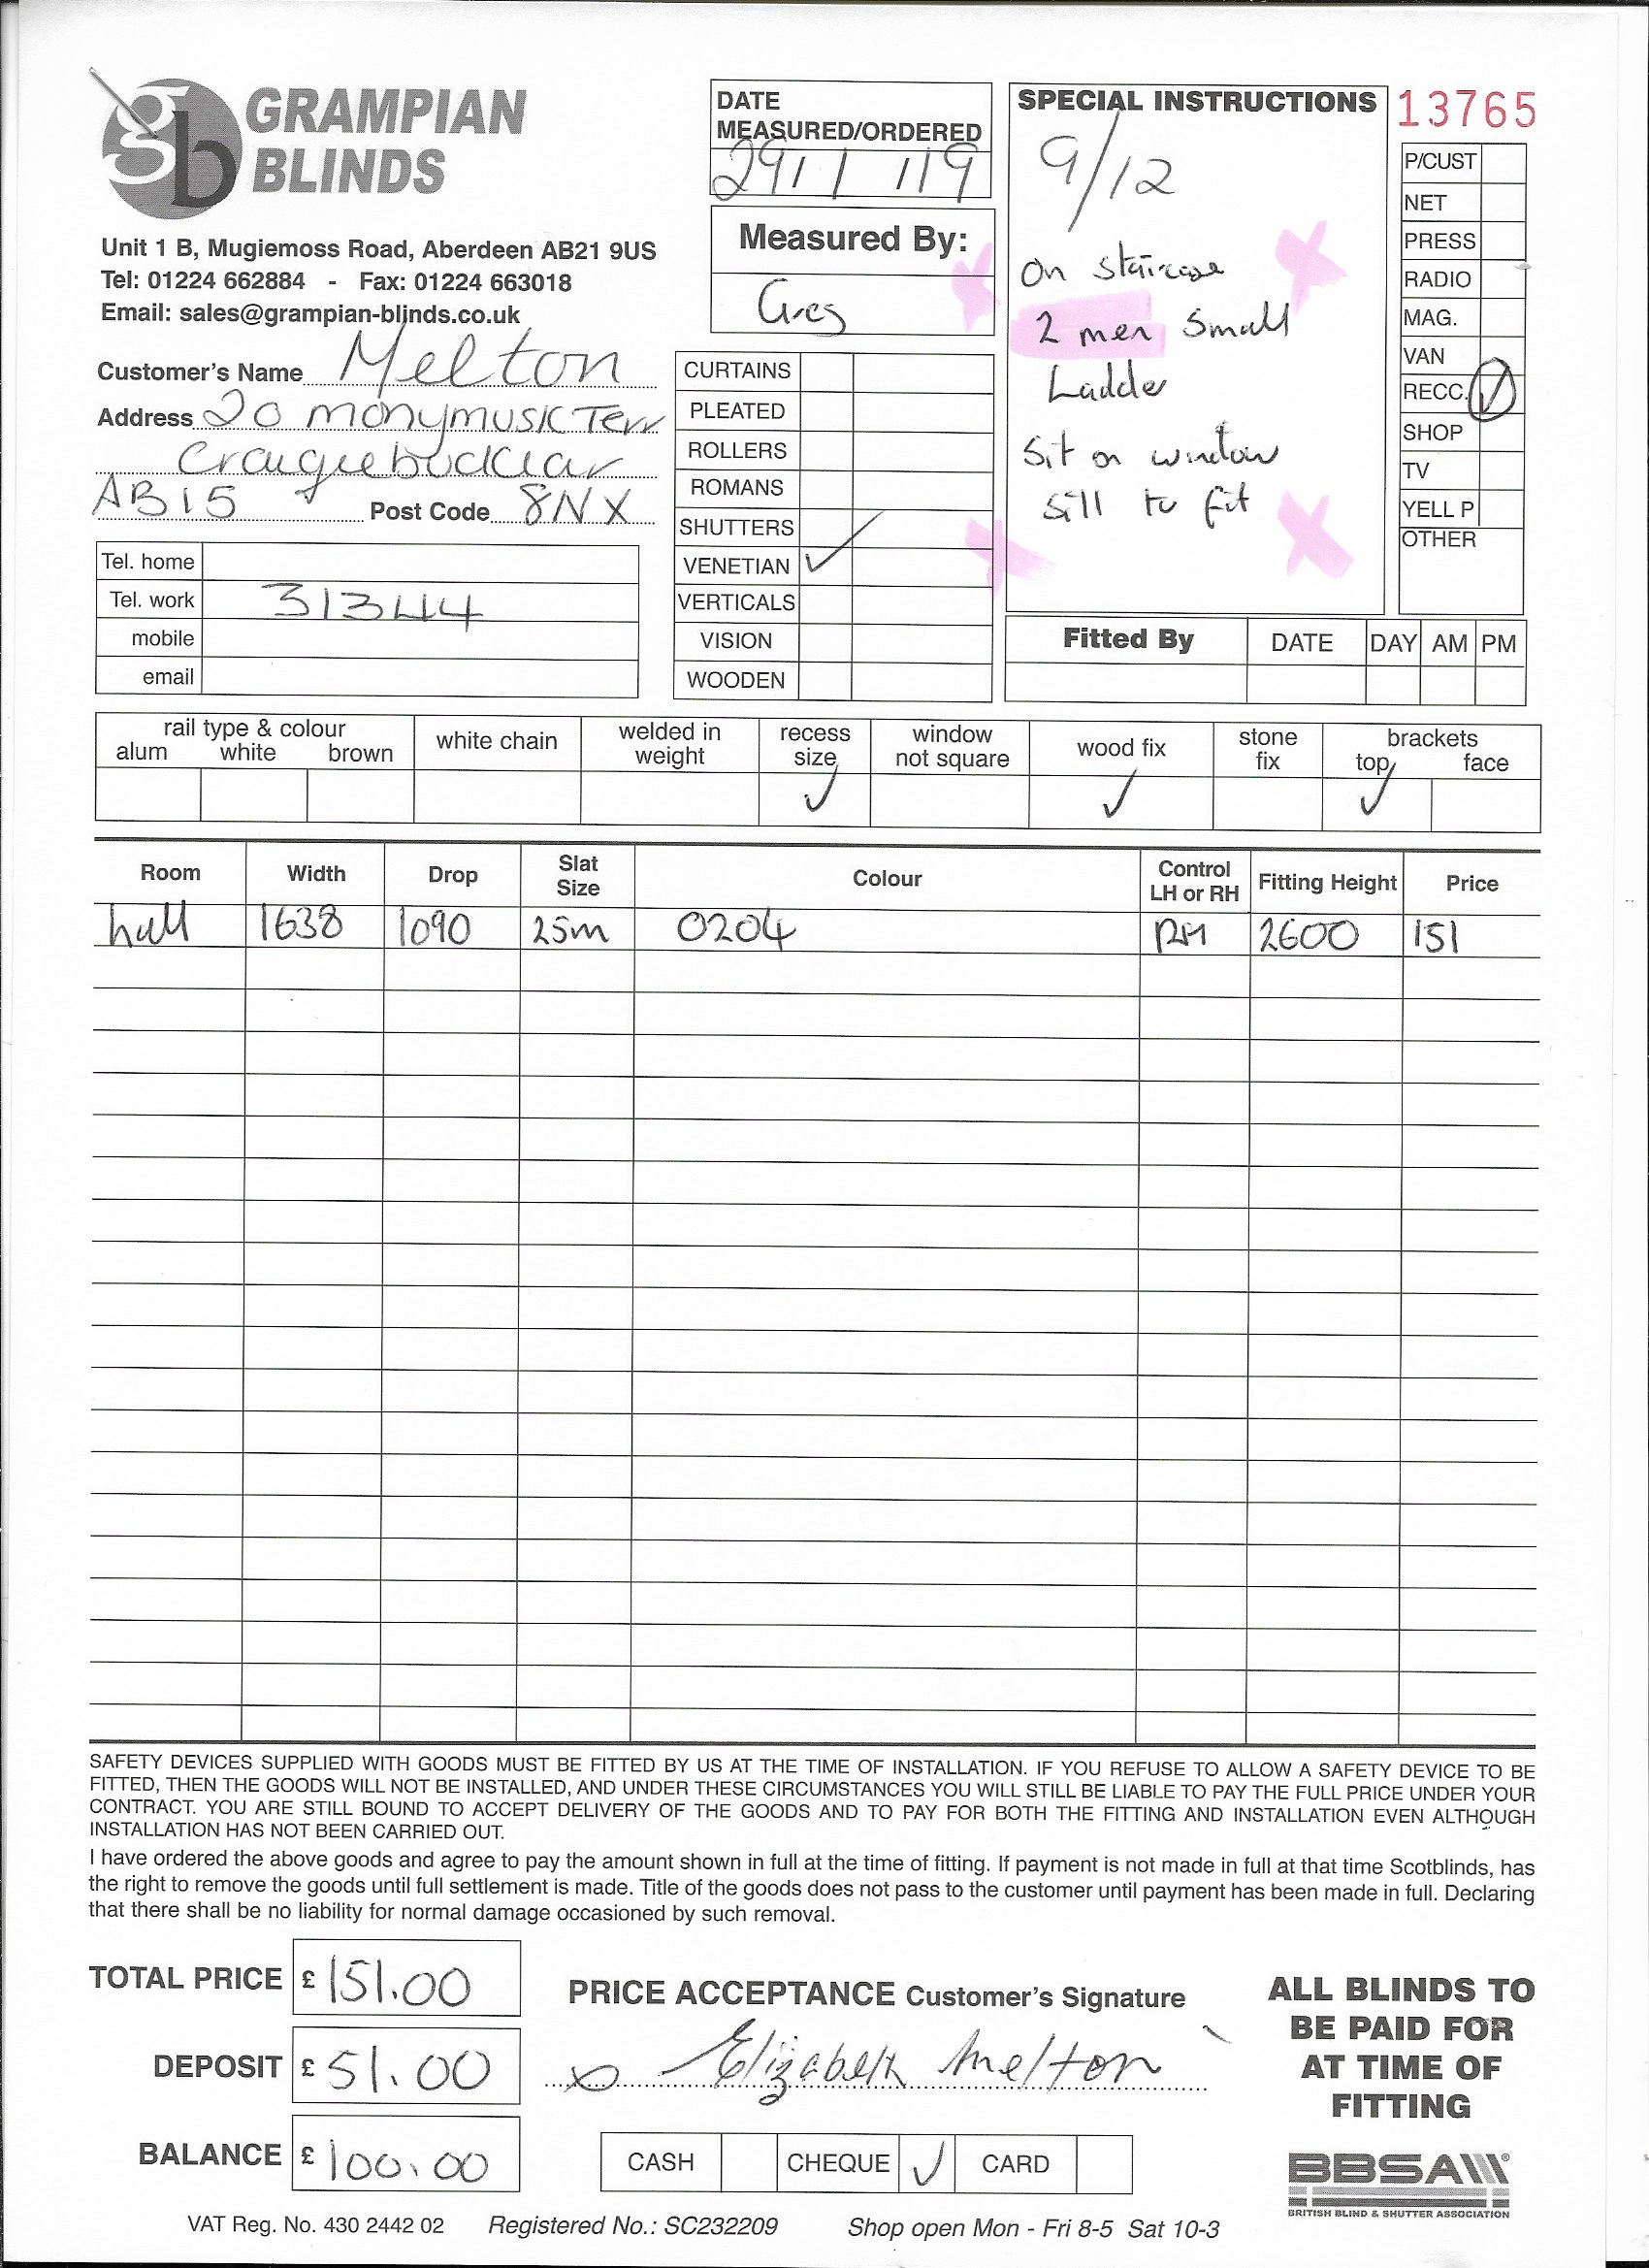 GRAMPIAN
BLINDS
gb
Unit 1 B, Mugiemoss Road, Aberdeen AB21 9US
Tel: 01224 662884 - Fax: 01224 663018
Email: sales@grampian-blinds.co.uk
Customer's Name Melton
Address 20 monymusk Terr
Craigiebuckler
AB15 Post Code 8NX
Tel. home
Tel. work 31344
mobile
email
DATE
MEASURED/ORDERED
29/1/19
Measured By:
Greg
CURTAINS
PLEATED
ROLLERS
ROMANS
SHUTTERS
VENETIAN ✓
VERTICALS
VISION
WOODEN
SPECIAL INSTRUCTIONS
9/12
On staircase
2 men small
Ladder
Sit on window
sill to fit
13765
P/CUST
NET
PRESS
RADIO
MAG.
VAN
RECC. ✓
SHOP
TV
YELL P
OTHER
Fitted By DATE DAY AM PM
rail type & colour
alum white brown
white chain
welded in
weight
recess
size ✓
window
not square
wood fix ✓
stone
fix
brackets
top ✓ face
Room Width Drop Slat Size Colour Control LH or RH Fitting Height Price
hall 1638 1090 25m 0204 RH 2600 151
SAFETY DEVICES SUPPLIED WITH GOODS MUST BE FITTED BY US AT THE TIME OF INSTALLATION. IF YOU REFUSE TO ALLOW A SAFETY DEVICE TO BE
FITTED, THEN THE GOODS WILL NOT BE INSTALLED, AND UNDER THESE CIRCUMSTANCES YOU WILL STILL BE LIABLE TO PAY THE FULL PRICE UNDER YOUR
CONTRACT. YOU ARE STILL BOUND TO ACCEPT DELIVERY OF THE GOODS AND TO PAY FOR BOTH THE FITTING AND INSTALLATION EVEN ALTHOUGH
INSTALLATION HAS NOT BEEN CARRIED OUT.
I have ordered the above goods and agree to pay the amount shown in full at the time of fitting. If payment is not made in full at that time Scotblinds, has
the right to remove the goods until full settlement is made. Title of the goods does not pass to the customer until payment has been made in full. Declaring
that there shall be no liability for normal damage occasioned by such removal.
TOTAL PRICE £ 151.00
DEPOSIT £ 51.00
BALANCE £ 100.00
PRICE ACCEPTANCE Customer's Signature
x Elizabeth Melton
CASH CHEQUE ✓ CARD
ALL BLINDS TO
BE PAID FOR
AT TIME OF
FITTING
BBSA
BRITISH BLIND & SHUTTER ASSOCIATION
VAT Reg. No. 430 2442 02 Registered No.: SC232209 Shop open Mon - Fri 8-5 Sat 10-3